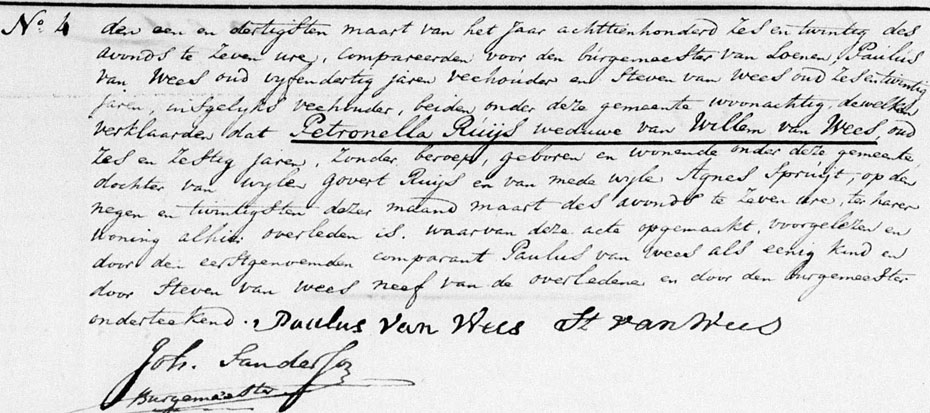 No. 4 den een en dertigsten maart van het Jaar achttienhonderd zes en twintig des
avonds te zeven ure, compareerden voor den burgemeester van Loenen, Paulus
van Wees oud vyfendertig jaren veehouder en Steven van Wees oud zes en twintig
jaren, insgelyks veehouder, beiden onder deze gemeente woonachtig, dewelken
verklaarden dat Petronella Ruijs weduwe van Willem van Wees, oud
zes en zestig jaren, zonder beroep, geboren en wonende onder deze gemeente
dochter van wyle Govert Ruijs en van mede wyle Agnes Spruijt, op den
negen en twintigsten dezer maand maart des avonds te zeven ure, ter harer
woning alhier overleden is. waarvan deze acte opgemaakt, voorgelezen en
door den eerstgenoemden comparant Paulus van Wees als eenig kind en
door Steven van Wees neef van de overledene en door den burgemeester
onderteekend. Paulus van Wees St van Wees
Joh. Sanderson
Burgemeester